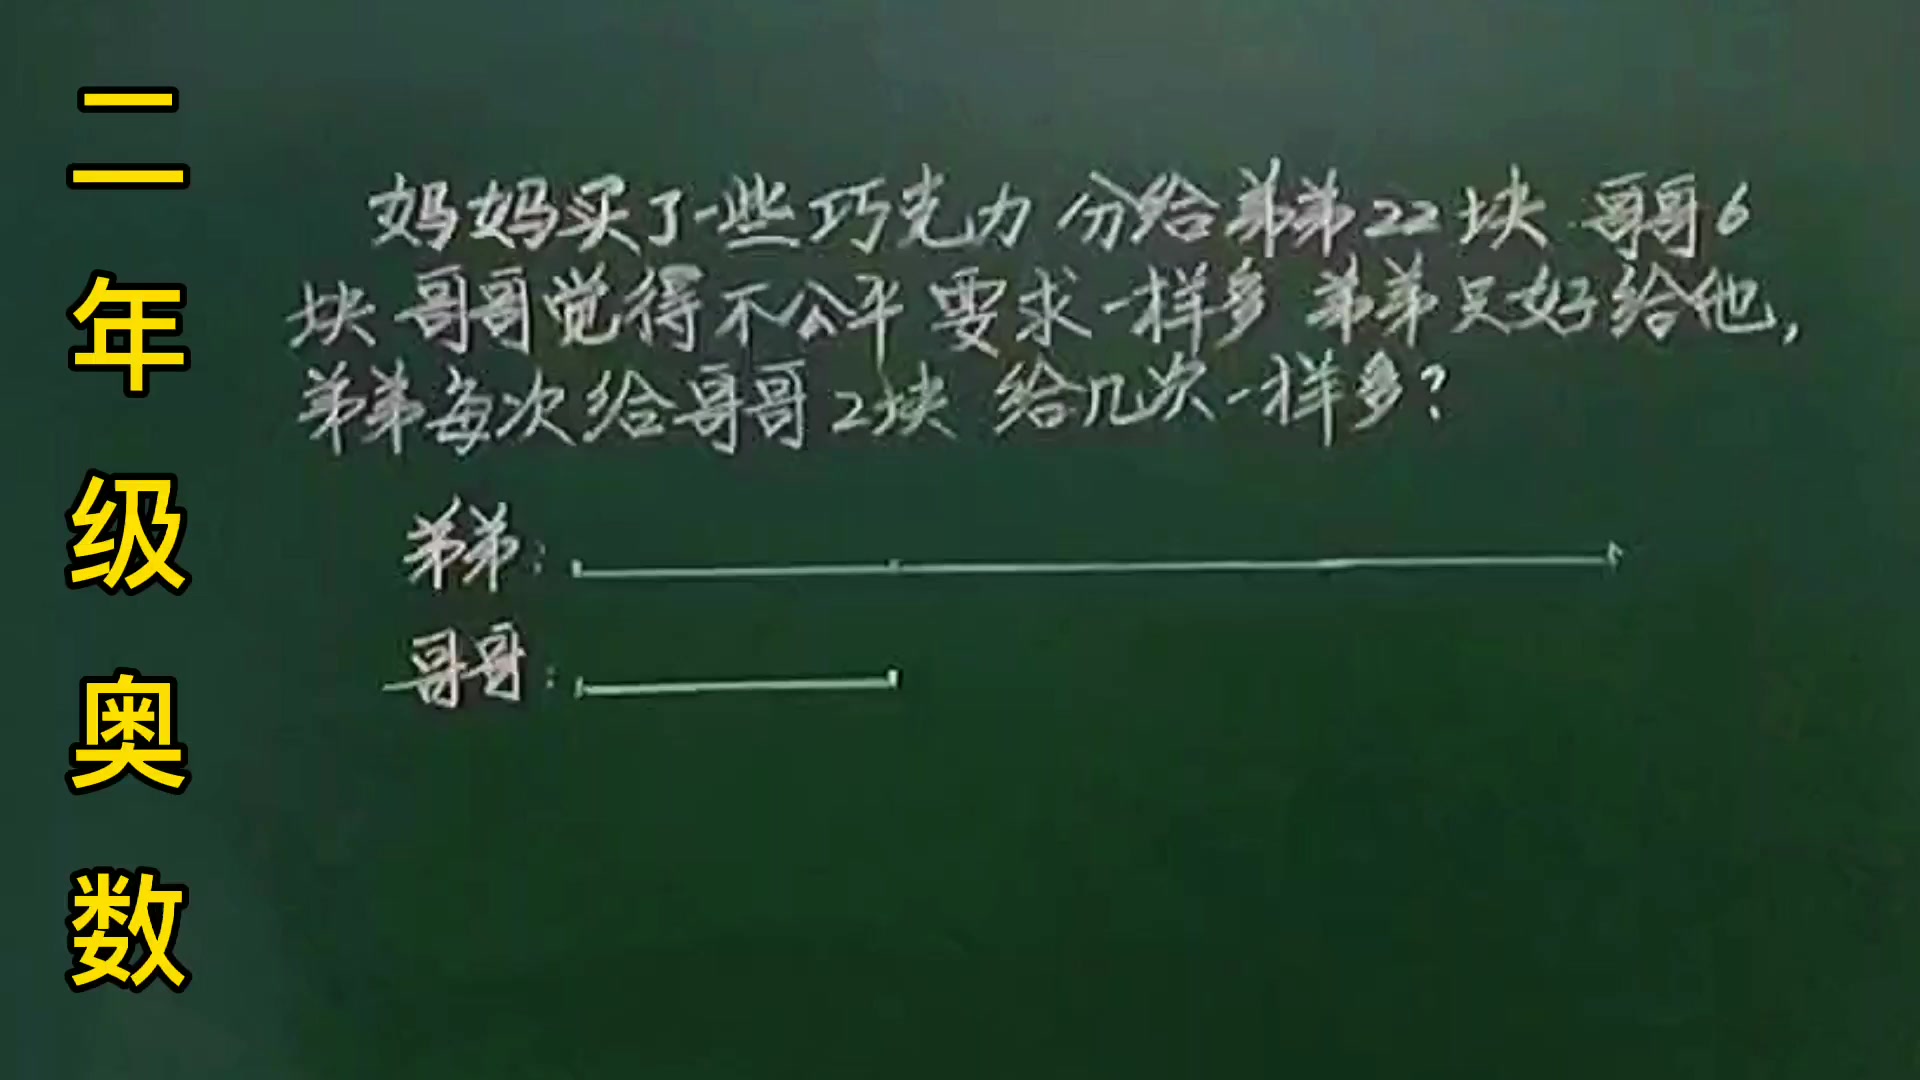 二年级奥数
妈妈买了一些巧克力 分给弟弟22块 哥哥6
块 哥哥觉得不公平 要求一样多 弟弟只好给他,
弟弟每次给哥哥2块 给几次一样多?
弟弟:
哥哥: